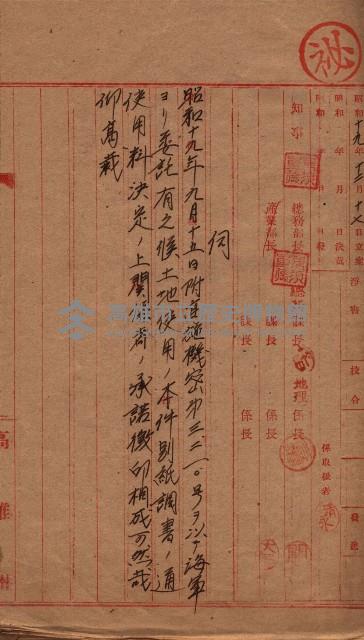 秘
昭和十九年十二月十六日立案
昭和 年 月 日決裁
昭和 年 月 日
淨書
校合
發送
知事
總務部長
產業部長
總務課長
課長
課長
地理係長
係長
係長
係取扱者
伺
昭和十九年九月十五日附自施機密第三三一〇号ヲ以テ海軍
ヨリ委託有之候土地使用ノ本件別紙調書ノ通
使用料決定ノ上関係者ノ承諾徴印相成可然哉
仰高裁
高雄州
高雄市立歷史博物館